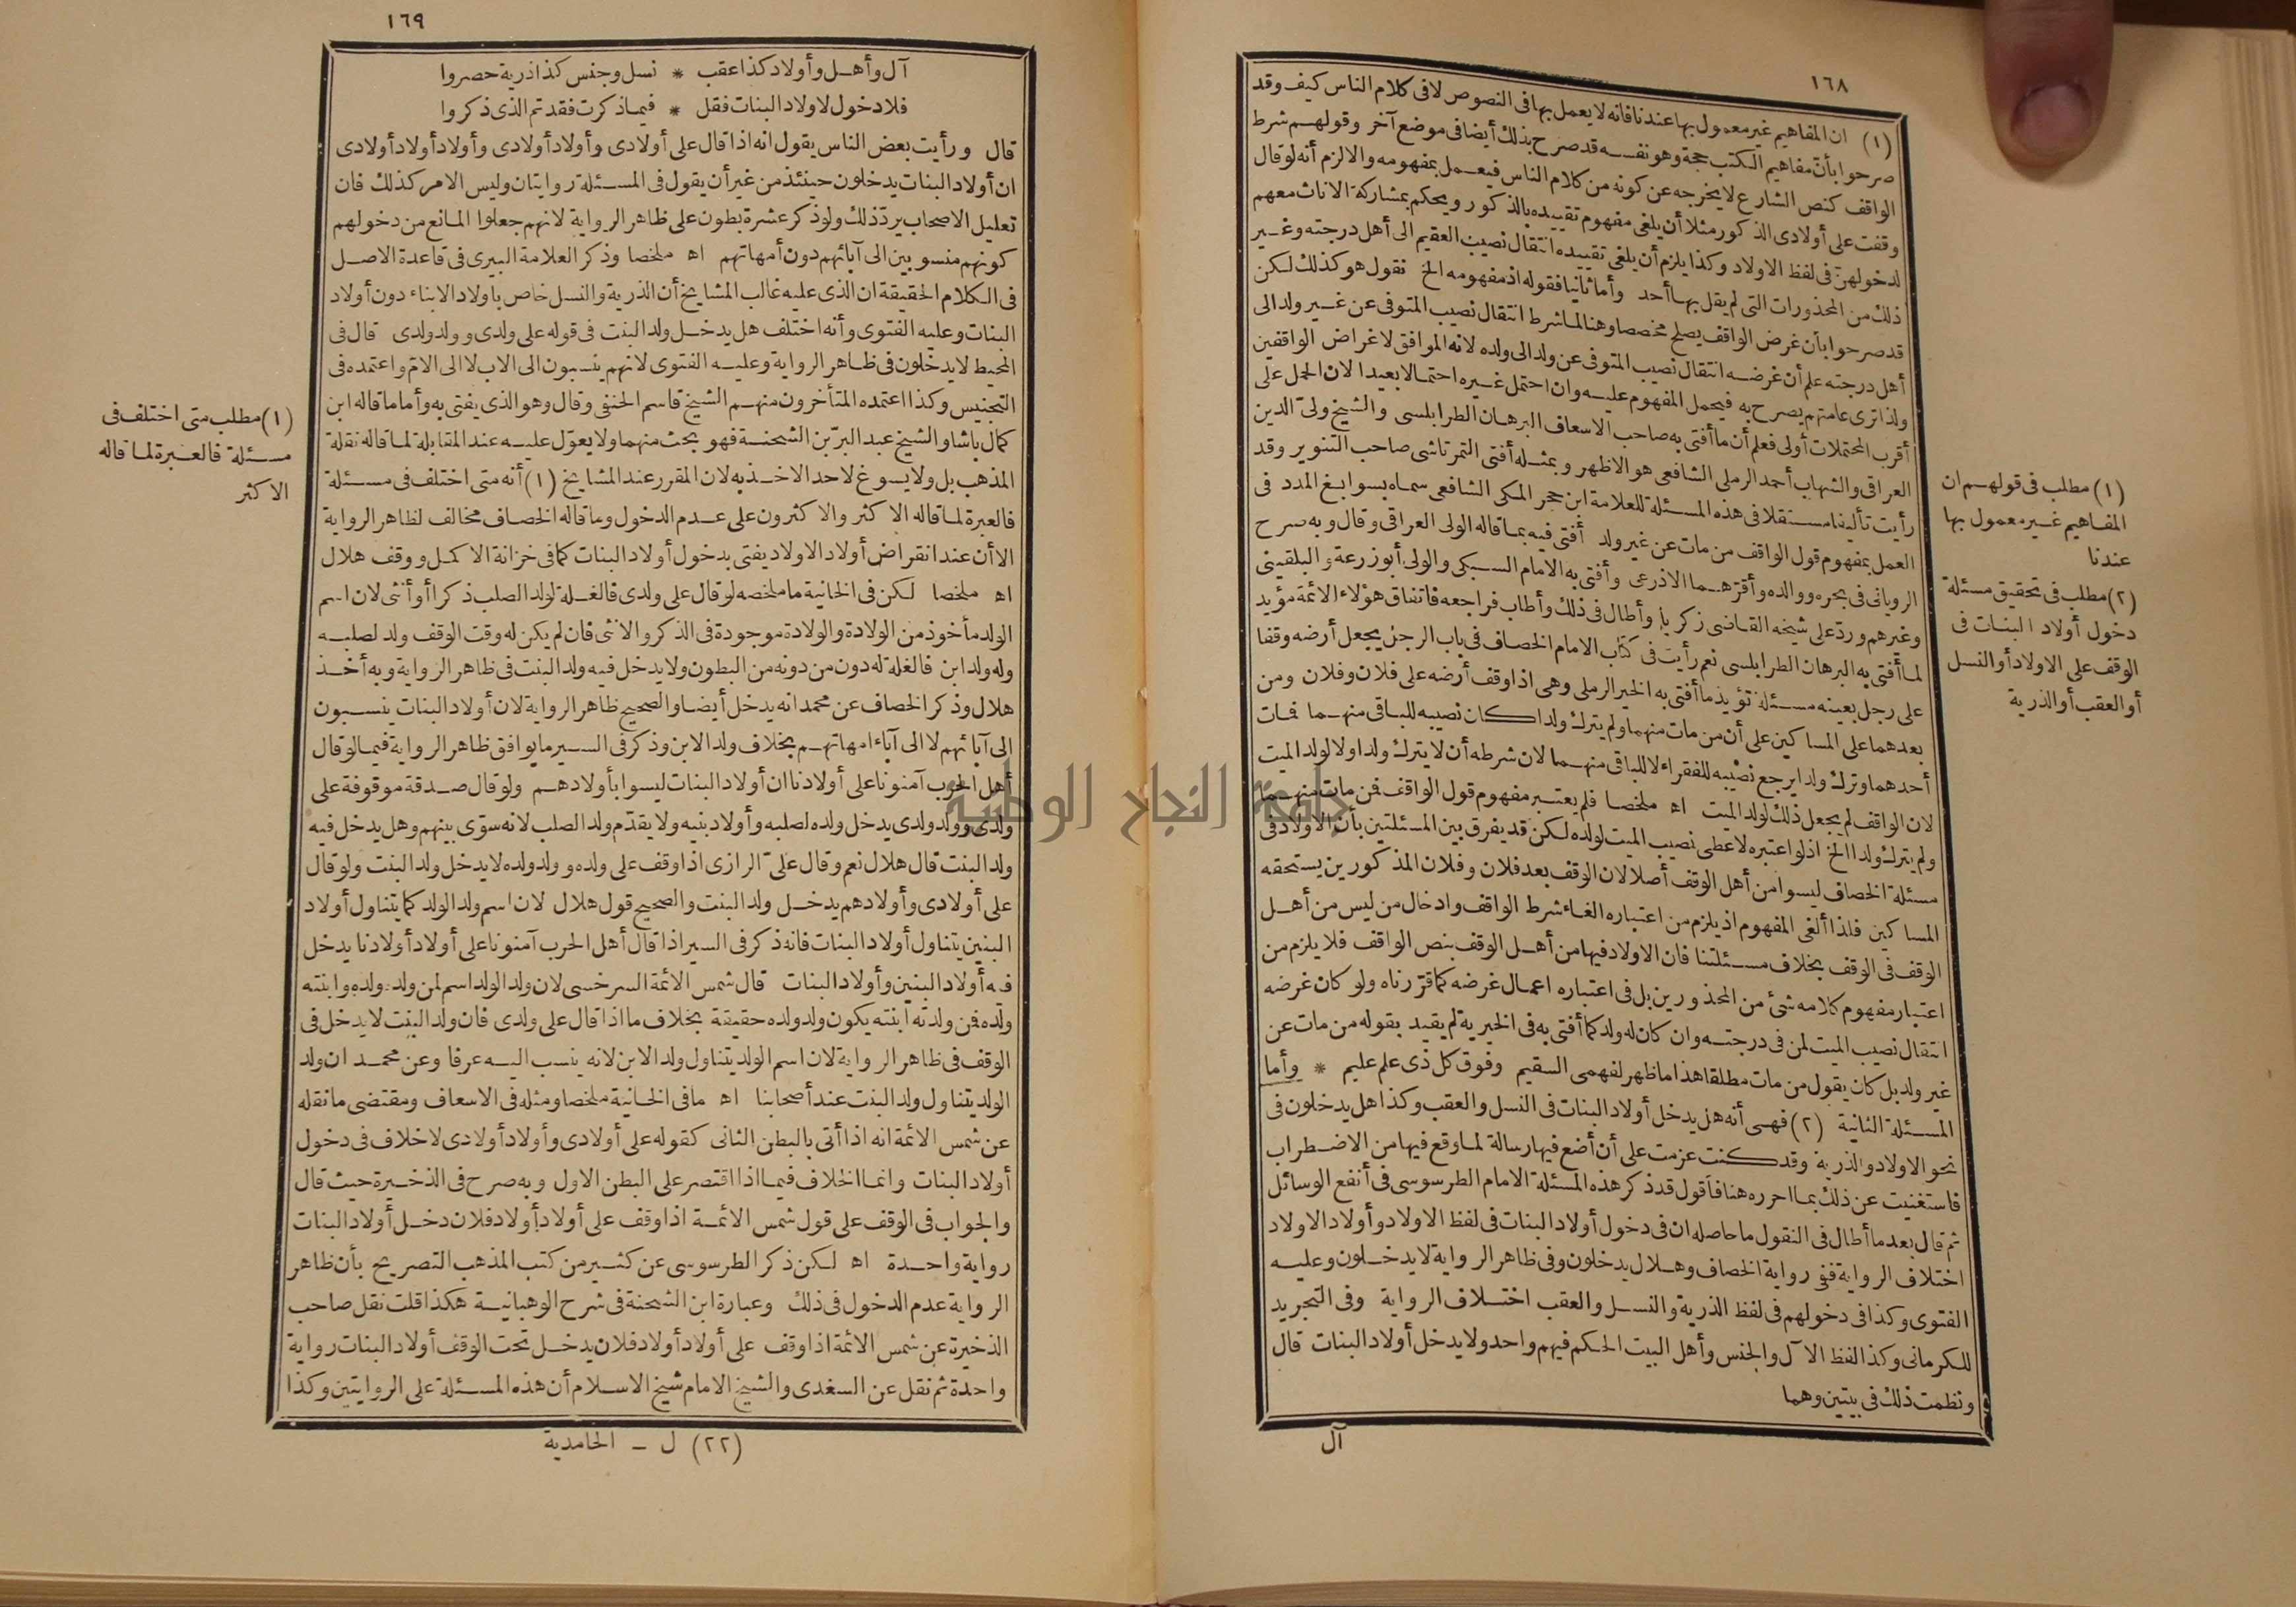 ١٦٨
(١) ان المفاهيم غير معمول بها عندنا فانه لا يعمل بها فى النصوص لا فى كلام الناس كيف وقد
صرحوا بأن مفاهيم الكتب حجة وهو نفسه قد صرح بذلك أيضا فى موضع آخر وقولهم شرط
الواقف كنص الشارع لا يخرجه عن كونه من كلام الناس فيعمل بمفهومه والا لزم أنه لو قال
وقفت على أولادى الذكور مثلا أن يلغى مفهوم تقييده بالذكور ويحكم بمشاركة الاناث معهم
لدخولهن فى لفظ الاولاد وكذا يلزم أن يلغى تقييده انتقال نصيب العقيم الى أهل درجته وغير
ذلك من المحذورات التى لم يقل بها أحد وأما ثانيا فقوله اذ مفهومه الخ نقول هو كذلك لكن
قد صرحوا بأن غرض الواقف يصلح مخصصا وهنا لما شرط انتقال نصيب المتوفى عن غير ولد الى
أهل درجته علم أن غرضه انتقال نصيب المتوفى عن ولد الى ولده لانه الموافق لاغراض الواقفين
ولذا ترى عامتهم يصرح به فيحمل المفهوم عليه وان احتمل غيره احتمالا بعيدا لان الحمل على
أقرب المحتملات أولى فعلم أن ما أفتى به صاحب الاسعاف البرهان الطرابلسى والشيخ ولى الدين
العراقى والشهاب أحمد الرملى الشافعى هو الاظهر وبمثله أفتى التمرتاشى صاحب التنوير وقد
رأيت تأليفا مستقلا فى هذه المسئلة للعلامة ابن حجر المكى الشافعى سماه بسوابغ المدد فى
العمل بمفهوم قول الواقف من مات عن غير ولد أفتى فيه بما قاله الولى العراقى وقال وبه صرح
الرويانى فى بحره ووالده وأقرهما الاذرعى وأفتى به الامام السبكى والولى أبو زرعة والبلقينى
وغيرهم ورد على شيخه القاضى زكريا وأطال فى ذلك وأطاب فراجعه فاتفاق هؤلاء الائمة مؤيد
لما أفتى به البرهان الطرابلسى نعم رأيت فى كتاب الامام الخصاف فى باب الرجل يجعل أرضه وقفا
على رجل بعينه مسئلة تؤيد ما أفتى به الخير الرملى وهى اذا وقف أرضه على فلان وفلان ومن
بعدهما على المساكين على أن من مات منهما ولم يترك ولدا كان نصيبه للباقى منهما فمات
أحدهما وترك ولدا يرجع نصيبه للفقراء لا للباقى منهما لان شرطه أن لا يترك ولدا ولا لولد الميت
لان الواقف لم يجعل ذلك لولد الميت اه ملخصا فلم يعتبر مفهوم قول الواقف فمن مات منهما
ولم يترك ولدا الخ اذ لو اعتبره لاعطى نصيب الميت لولده لكن قد يفرق بين المسئلتين بأن الاولاد فى
مسئلة الخصاف ليسوا من أهل الوقف أصلا لان الوقف بعد فلان وفلان المذكورين يستحقه
المساكين فلذا ألغى المفهوم اذ يلزم من اعتباره الغاء شرط الواقف وادخال من ليس من أهل
الوقف فى الوقف بخلاف مسئلتنا فان الاولاد فيها من أهل الوقف بنص الواقف فلا يلزم من
اعتبار مفهوم كلامه شئ من المحذورين بل فى اعتباره اعمال غرضه كما قررناه ولو كان غرضه
انتقال نصيب الميت لمن فى درجته وان كان له ولد كما أفتى به فى الخيرية لم يقيد بقوله من مات عن
غير ولد بل كان يقول من مات مطلقا هذا ما ظهر لفهمى السقيم وفوق كل ذى علم عليم * وأما
المسئلة الثانية (٢) فهى أنه هل يدخل أولاد البنات فى النسل والعقب وكذا هل يدخلون فى
نحو الاولاد والذرية وقد كنت عزمت على أن أضع فيها رسالة لما وقع فيها من الاضطراب
فاستغنيت عن ذلك بما احرره هنا فأقول قد ذكر هذه المسئلة الامام الطرسوسى فى أنفع الوسائل
ثم قال بعد ما أطال فى النقول ما حاصله ان فى دخول أولاد البنات فى لفظ الاولاد وأولاد الاولاد
اختلاف الرواية ففى رواية الخصاف وهلال يدخلون وفى ظاهر الرواية لا يدخلون وعليه
الفتوى وكذا فى دخولهم فى لفظ الذرية والنسل والعقب اختلاف الرواية وفى التجريد
للكرمانى وكذا لفظ الآل والجنس وأهل البيت الحكم فيهم واحد ولا يدخل أولاد البنات قال
ونظمت ذلك فى بيتين وهما
آل
(١) مطلب فى قولهم ان
المفاهيم غير معمول بها
عندنا
(٢) مطلب فى تحقيق مسئلة
دخول أولاد البنات فى
الوقف على الاولاد أو النسل
أو العقب أو الذرية
١٦٩
آل وأهل وأولاد كذا عقب * نسل وجنس كذا ذرية حصروا
فلا دخول لاولاد البنات فقل * فيما ذكرت فقد تم الذى ذكروا
قال ورأيت بعض الناس يقول انه اذا قال على أولادى وأولاد أولادى وأولاد أولاد أولادى
ان أولاد البنات يدخلون حينئذ من غير أن يقول فى المسئلة روايتان وليس الامر كذلك فان
تعليل الاصحاب يرد ذلك ولو ذكر عشرة بطون على ظاهر الرواية لانهم جعلوا المانع من دخولهم
كونهم منسوبين الى آبائهم دون أمهاتهم اه ملخصا وذكر العلامة البيرى فى قاعدة الاصل
فى الكلام الحقيقة ان الذى عليه غالب المشايخ أن الذرية والنسل خاص باولاد الابناء دون أولاد
البنات وعليه الفتوى وأنه اختلف هل يدخل ولد البنت فى قوله على ولدى وولد ولدى قال فى
المحيط لا يدخلون فى ظاهر الرواية وعليه الفتوى لانهم ينسبون الى الاب لا الى الام واعتمده فى
التجنيس وكذا اعتمده المتأخرون منهم الشيخ قاسم الحنفى وقال وهو الذى يفتى به وأما ما قاله ابن
كمال باشا والشيخ عبد البر بن الشحنة فهو بحث منهما ولا يعول عليه عند المقابلة لما قاله نقلة
المذهب بل ولا يسوغ لاحد الاخذ به لان المقرر عند المشايخ (١) أنه متى اختلف فى مسئلة
فالعبرة لما قاله الاكثر والاكثرون على عدم الدخول وما قاله الخصاف مخالف لظاهر الرواية
الا أن عند انقراض أولاد الاولاد يفتى بدخول أولاد البنات كما فى خزانة الاكمل ووقف هلال
اه ملخصا لكن فى الخانية ما ملخصه لو قال على ولدى فالغلة لولد الصلب ذكرا أو أنثى لان اسم
الولد مأخوذ من الولادة والولادة موجودة فى الذكر والانثى فان لم يكن له وقت الوقف ولد لصلبه
وله ولد ابن فالغلة له دون من دونه من البطون ولا يدخل فيه ولد البنت فى ظاهر الرواية وبه أخذ
هلال وذكر الخصاف عن محمد انه يدخل أيضا والصحيح ظاهر الرواية لان أولاد البنات ينسبون
الى آبائهم لا الى آباء امهاتهم بخلاف ولد الابن وذكر فى السير ما يوافق ظاهر الرواية فيما لو قال
أهل الحرب آمنونا على أولادنا ان أولاد البنات ليسوا بأولادهم ولو قال صدقة موقوفة على
ولدى وولد ولدى يدخل ولده لصلبه وأولاد بنيه ولا يقدم ولد الصلب لانه سوى بينهم وهل يدخل فيه
ولد البنت قال هلال نعم وقال على الرازى اذا وقف على ولده وولد ولده لا يدخل ولد البنت ولو قال
على أولادى وأولادهم يدخل ولد البنت والصحيح قول هلال لان اسم ولد الولد كما يتناول أولاد
البنين يتناول أولاد البنات فانه ذكر فى السير اذا قال أهل الحرب آمنونا على أولاد أولادنا يدخل
فيه أولاد البنين وأولاد البنات قال شمس الائمة السرخسى لان ولد الولد اسم لمن ولد ولده وابنته
ولده فمن ولدته ابنته يكون ولد ولده حقيقة بخلاف ما اذا قال على ولدى فان ولد البنت لا يدخل فى
الوقف فى ظاهر الرواية لان اسم الولد يتناول ولد الابن لانه ينسب اليه عرفا وعن محمد ان ولد
الولد يتناول ولد البنت عند أصحابنا اه ما فى الخانية ملخصا ومثله فى الاسعاف ومقتضى ما نقله
عن شمس الائمة انه اذا أتى بالبطن الثانى كقوله على أولادى وأولاد أولادى لا خلاف فى دخول
أولاد البنات وانما الخلاف فيما اذا اقتصر على البطن الاول وبه صرح فى الذخيرة حيث قال
والجواب فى الوقف على قول شمس الائمة اذا وقف على أولاد أولاد فلان دخل أولاد البنات
رواية واحدة اه لكن ذكر الطرسوسى عن كثير من كتب المذهب التصريح بأن ظاهر
الرواية عدم الدخول فى ذلك وعبارة ابن الشحنة فى شرح الوهبانية هكذا قلت نقل صاحب
الذخيرة عن شمس الائمة اذا وقف على أولاد أولاد فلان يدخل تحت الوقف أولاد البنات رواية
واحدة ثم نقل عن السغدى والشيخ الامام شيخ الاسلام أن هذه المسئلة على الروايتين وكذا
(٢٢) ل – الحامدية
(١) مطلب متى اختلف فى
مسئلة فالعبرة لما قاله
الاكثر
جامعة النجاح الوطنية